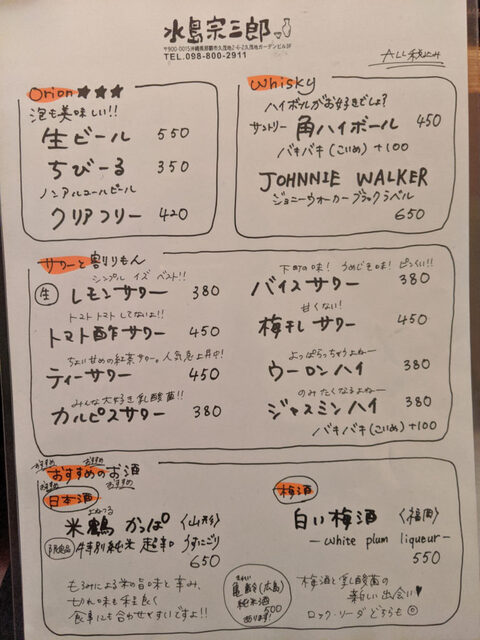 水島宗三郎
〒900-0015沖縄県那覇市久茂地2-6-2久茂地ガーデンビル3F
TEL.098-800-2911
ALL税込み
Orion★★★
泡も美味しい!!
生ビール 550
ちびーる 350
ノンアルコールビール
クリアフリー 420
Whisky
ハイボールがお好きでしょ?
サントリー 角ハイボール 450
バキバキ(こいめ)+100
JOHNNIE WALKER
ジョニーウォーカーブラックラベル
650
サワーと割りもん
シンプル イズ ベスト!!
生 レモンサワー 380
トマトトマトしてないよ!!
トマト酢サワー 450
ちょい甘めの紅茶サワー。人気急上昇中!
ティーサワー 450
みんな大好き乳酸菌!!
カルピスサワー 380
下町の味! うめじそ味! ピンくい!!
バイスサワー 380
甘くない!
梅干しサワー 450
よっぱらっちゃうよねー
ウーロンハイ 380
のみたくなるよねー
ジャスミンハイ 380
バキバキ(こいめ)+100
おすすめ おすすめ
おすすめのお酒
おすすめ おすすめ
日本酒
よねつる
米鶴 かっぱ〈山形〉
限定品 特別純米 超辛 うすにごり
650
もろみによる米の旨味と辛み、
切れ味も程良く
食事にも合わせやすいですよ!!
亀齢(広島)
純米酒
500
あります!
梅酒
白い梅酒〈福岡〉
-white plum liqueur-
550
梅酒と乳酸菌の
新しい出会い♥
ロック・ソーダどちらも◎